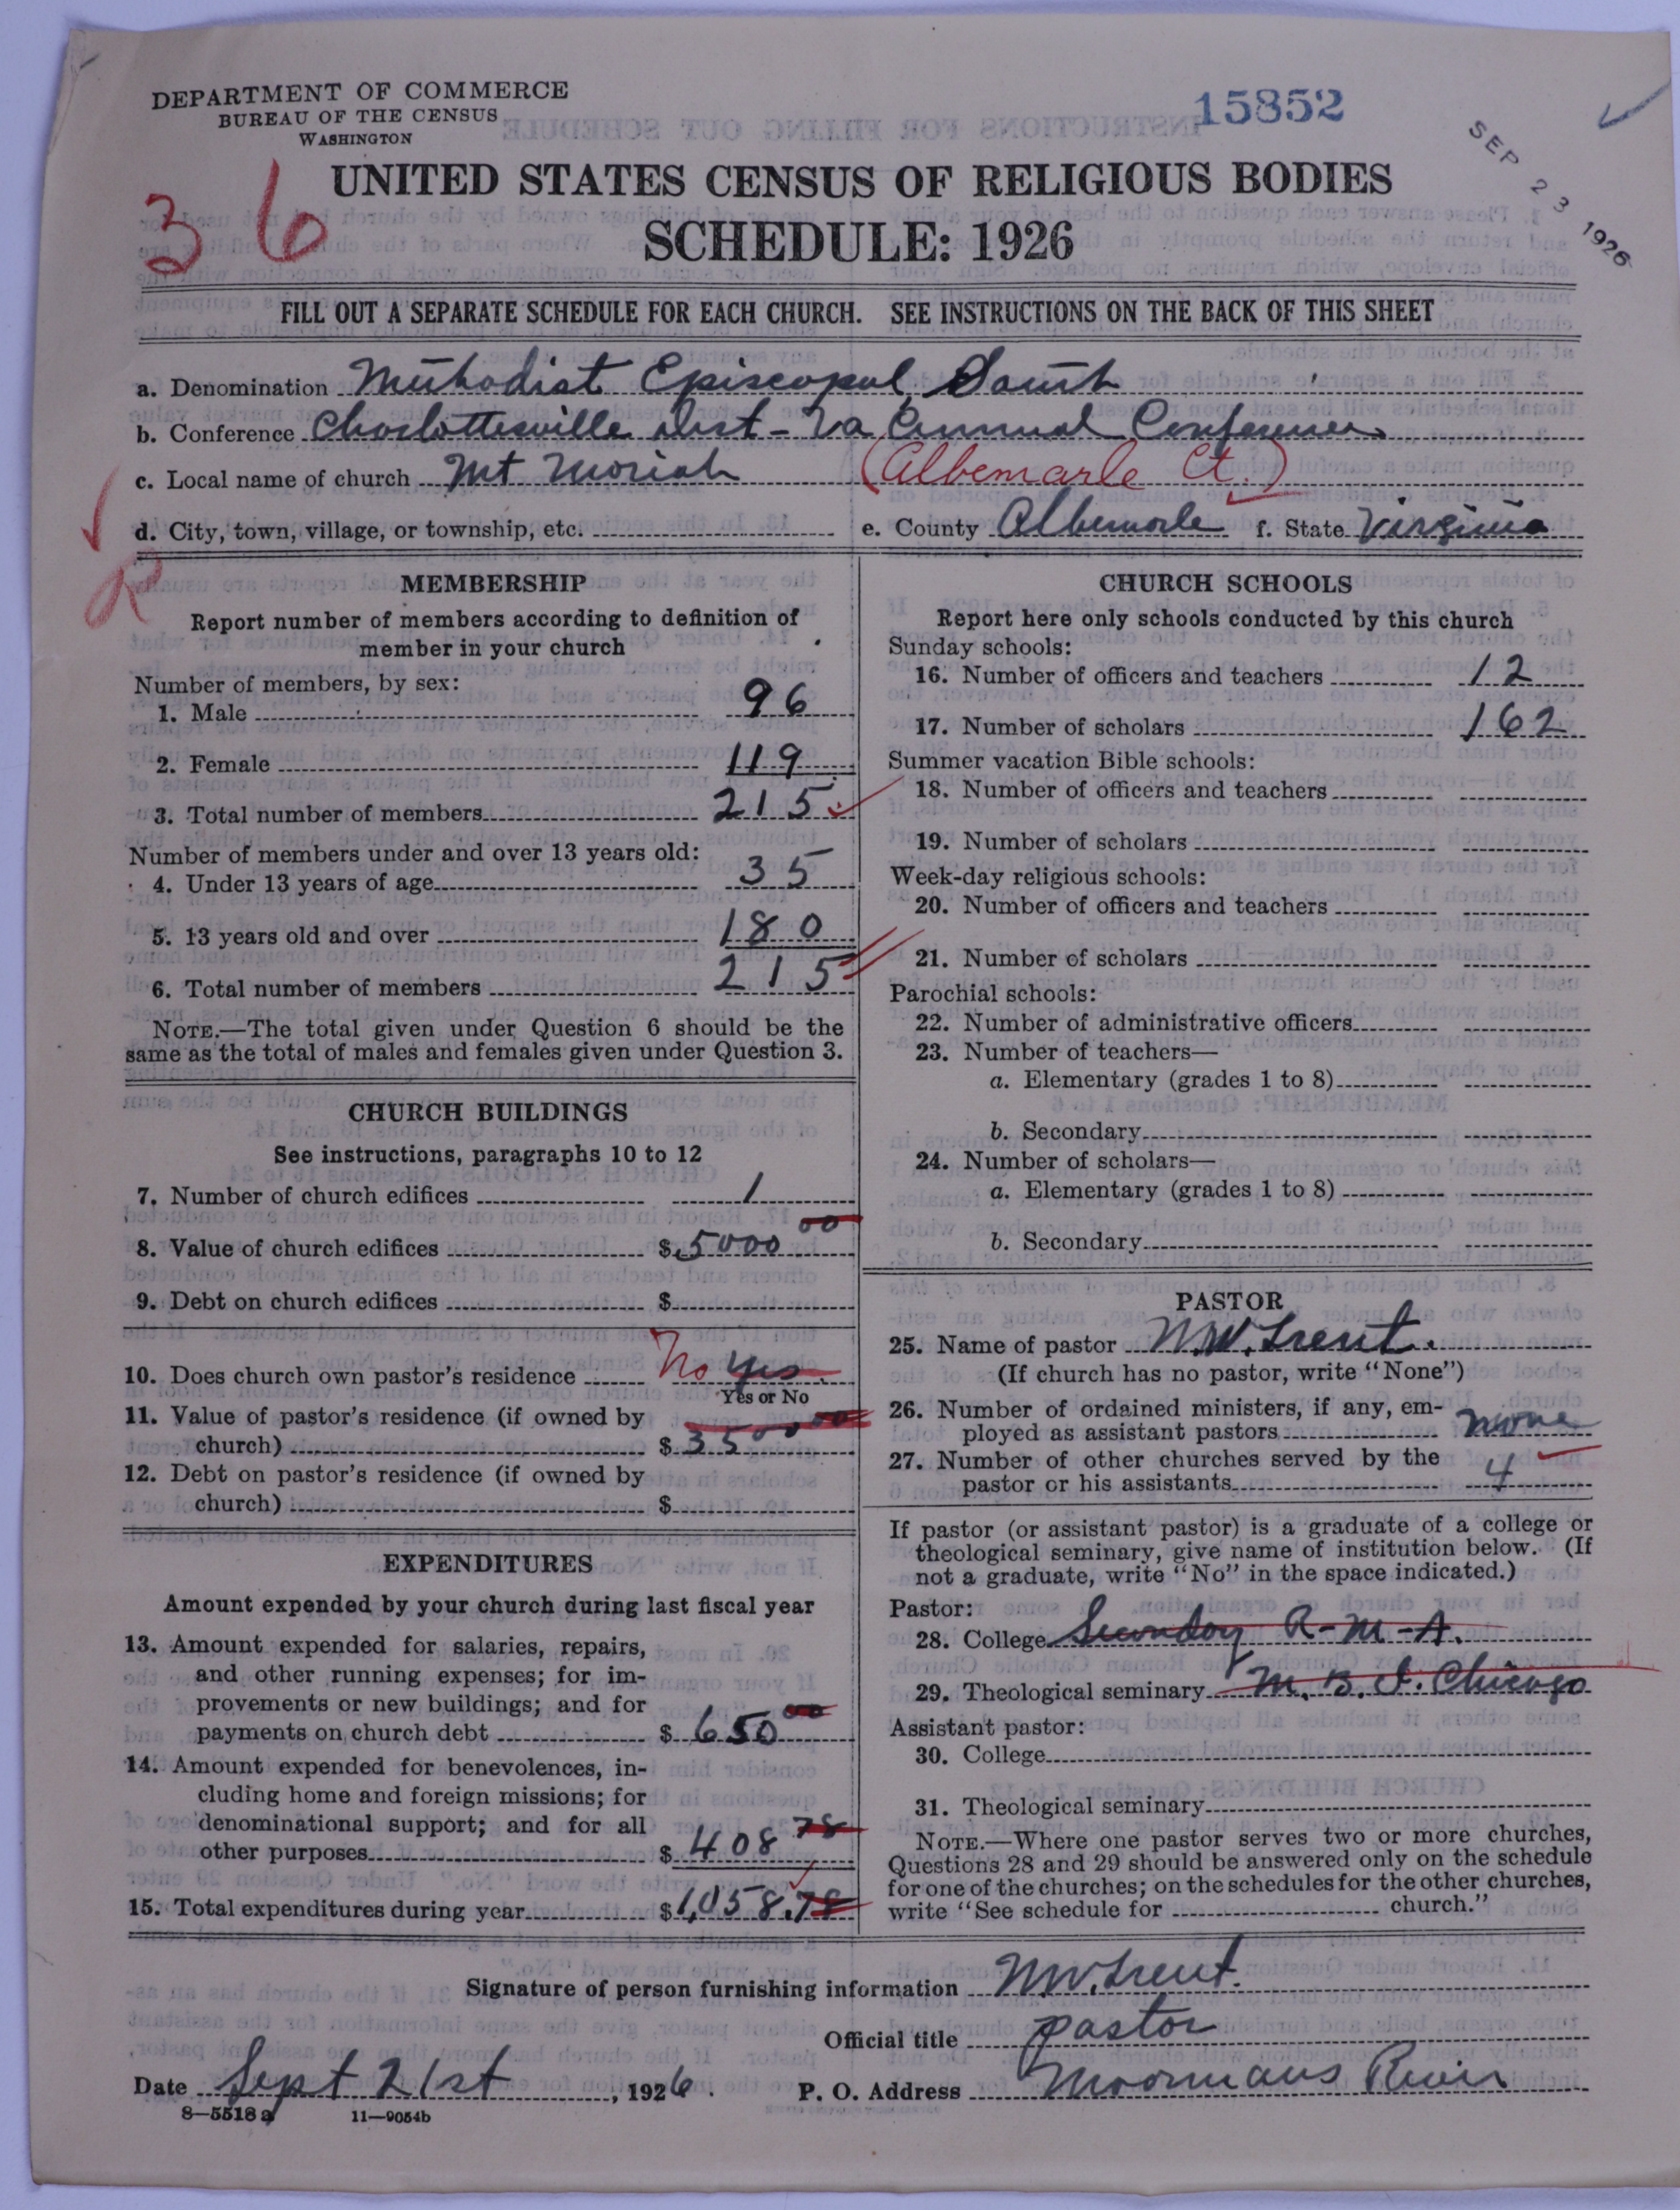 DEPARTMENT OF COMMERCE
BUREAU OF THE CENSUS
WASHINGTON
15852
SEP 23 1926
36
UNITED STATES CENSUS OF RELIGIOUS BODIES
SCHEDULE: 1926
FILL OUT A SEPARATE SCHEDULE FOR EACH CHURCH. SEE INSTRUCTIONS ON THE BACK OF THIS SHEET
a. Denomination Methodist Episcopal South
b. Conference Charlottesville Dist - Va Annual Conference
c. Local name of church Mt Moriah (Albemarle Ct.)
d. City, town, village, or township, etc.
e. County Albemarle f. State Virginia
MEMBERSHIP
Report number of members according to definition of
member in your church
Number of members, by sex:
1. Male 96
2. Female 119
3. Total number of members 215
Number of members under and over 13 years old:
4. Under 13 years of age 35
5. 13 years old and over 180
6. Total number of members 215
NOTE.—The total given under Question 6 should be the
same as the total of males and females given under Question 3.
CHURCH BUILDINGS
See instructions, paragraphs 10 to 12
7. Number of church edifices 1
8. Value of church edifices $ 5000 00
9. Debt on church edifices $
10. Does church own pastor's residence No Yes
Yes or No
11. Value of pastor's residence (if owned by
church) $ 3500 00
12. Debt on pastor's residence (if owned by
church) $
EXPENDITURES
Amount expended by your church during last fiscal year
13. Amount expended for salaries, repairs,
and other running expenses; for im-
provements or new buildings; and for
payments on church debt $ 650 00
14. Amount expended for benevolences, in-
cluding home and foreign missions; for
denominational support; and for all
other purposes $ 408 78
15. Total expenditures during year $ 1,058.78
CHURCH SCHOOLS
Report here only schools conducted by this church
Sunday schools:
16. Number of officers and teachers 12
17. Number of scholars 162
Summer vacation Bible schools:
18. Number of officers and teachers
19. Number of scholars
Week-day religious schools:
20. Number of officers and teachers
21. Number of scholars
Parochial schools:
22. Number of administrative officers
23. Number of teachers—
a. Elementary (grades 1 to 8)
b. Secondary
24. Number of scholars—
a. Elementary (grades 1 to 8)
b. Secondary
PASTOR
25. Name of pastor M.W. Trent.
(If church has no pastor, write "None")
26. Number of ordained ministers, if any, em-
ployed as assistant pastors none
27. Number of other churches served by the
pastor or his assistants 4
If pastor (or assistant pastor) is a graduate of a college or
theological seminary, give name of institution below. (If
not a graduate, write "No" in the space indicated.)
Pastor:
28. College Secondary R-M-A.
29. Theological seminary M. B. I. Chicago
Assistant pastor:
30. College
31. Theological seminary
NOTE.—Where one pastor serves two or more churches,
Questions 28 and 29 should be answered only on the schedule
for one of the churches; on the schedules for the other churches,
write "See schedule for church."
Signature of person furnishing information M.W. Trent.
Official title pastor
Date Sept 21st, 1926. P. O. Address Moormans River
8—5518a 11—9054b